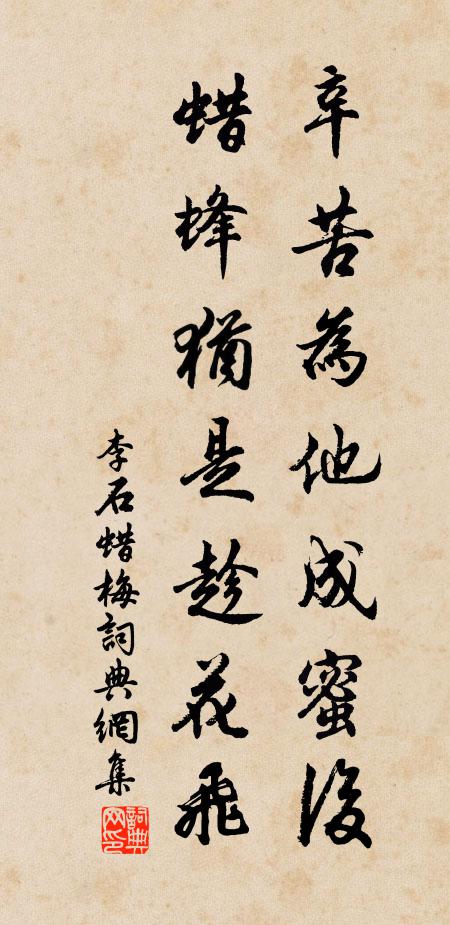 辛苦為他成蜜後
蜡蜂猶是趁花飛
李石蜡梅詞典網集
詞典網印